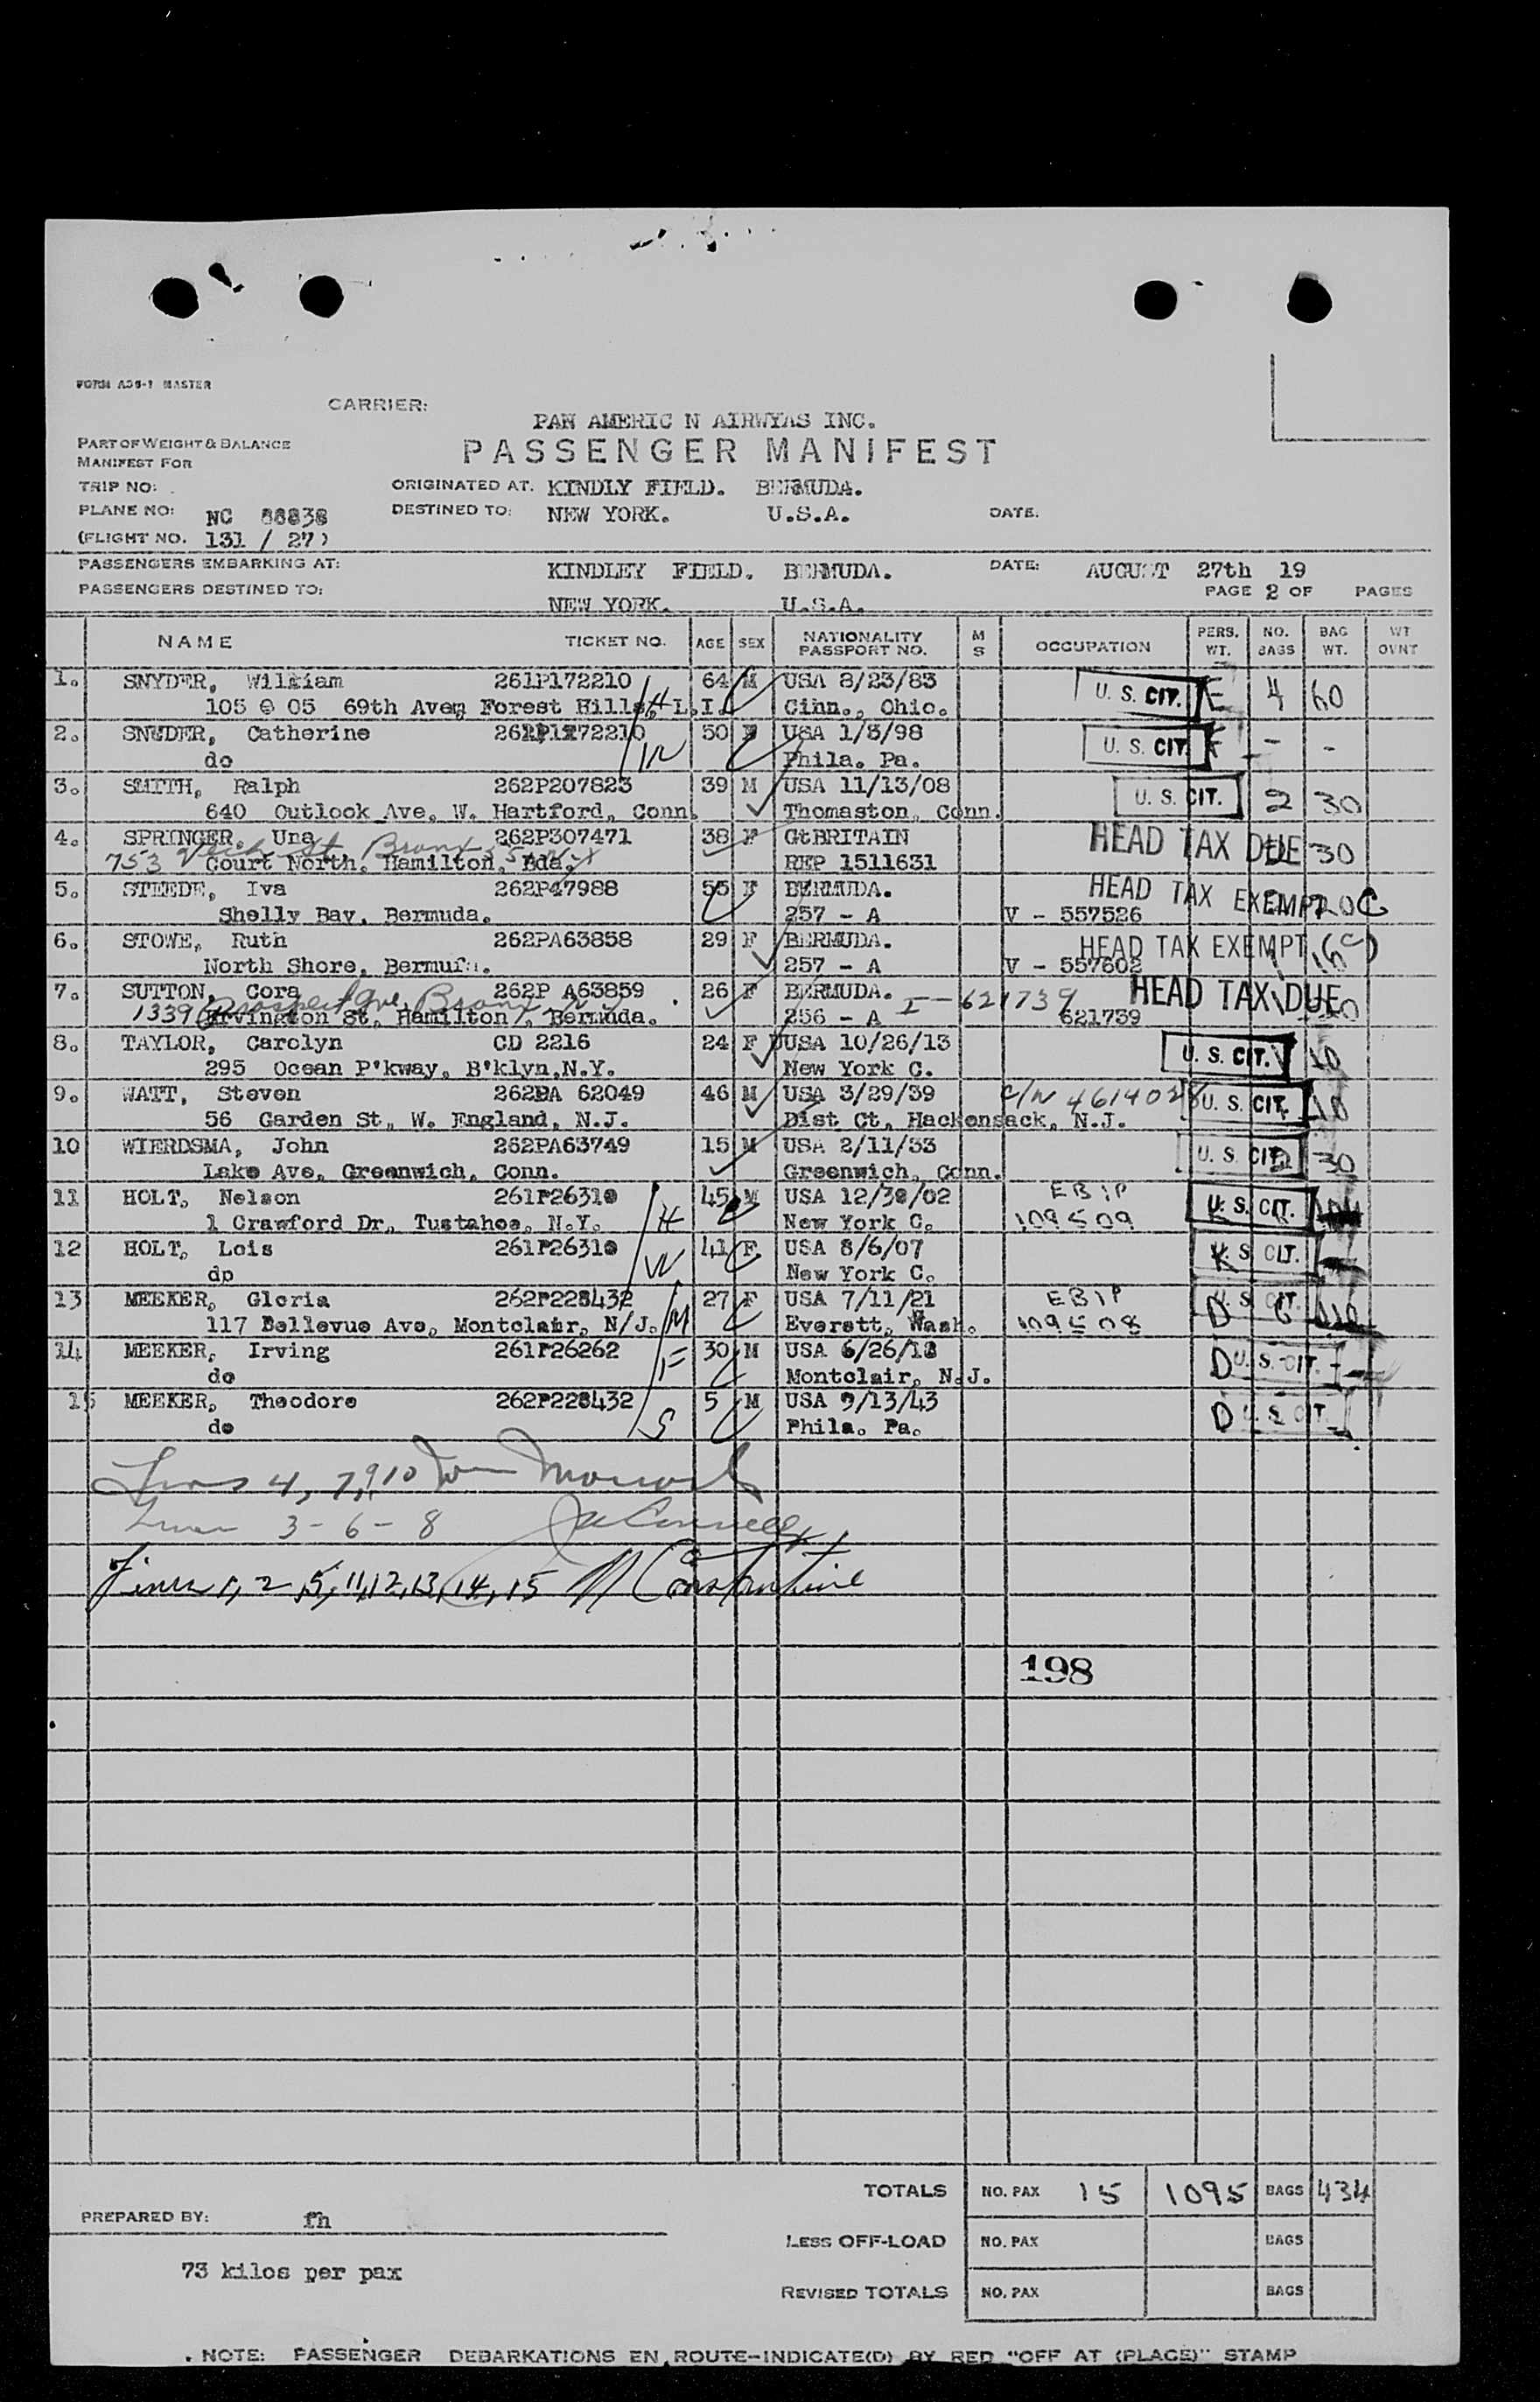 FORM ADS-1 MASTER
CARRIER:
PAN AMERIC N AIRWYAS INC.
PASSENGER MANIFEST
PART OF WEIGHT & BALANCE
MANIFEST FOR
TRIP NO:
ORIGINATED AT. KINDLY FIELD. BERMUDA.
PLANE NO: NC 88838 DESTINED TO: NEW YORK. U.S.A. DATE.
(FLIGHT NO. 131 / 27)
PASSENGERS EMBARKING AT: KINDLEY FIELD. BERMUDA. DATE: AUGUST 27th 19
PASSENGERS DESTINED TO: NEW YORK. U.S.A. PAGE 2 OF PAGES
NAME TICKET NO. AGE SEX NATIONALITY PASSPORT NO. M S OCCUPATION PERS. WT. NO. BAGS BAG WT. WT OVNT
1. SNYDER, William 261P172210 H 64 M USA 8/23/83 U. S. CIT. E 4 60
105 @ 05 69th Ave, Forest Hills, L.I. Cinn., Ohio.
2. SNYDER, Catherine 261P172210 W 50 F USA 1/5/98 U. S. CIT. - -
do Phila. Pa.
3. SMITH, Ralph 262P207823 39 M USA 11/13/08 U. S. CIT. 2 30
640 Outlook Ave. W. Hartford, Conn. Thomaston, Conn.
4. SPRINGER, Una 262P307471 38 F GtBRITAIN HEAD TAX DUE 30
753 Bronx
Court North, Hamilton, Bda. REP 1511631
5. STEEDE, Iva 262P47988 55 F BERMUDA. HEAD TAX EXEMPT
Shelly Bay, Bermuda. 257 - A V - 557526
6. STOWE, Ruth 262PA63858 29 F BERMUDA. HEAD TAX EXEMPT
North Shore, Bermuda. 257 - A V - 557602
7. SUTTON, Cora 262P A63859 26 F BERMUDA. I-621739 HEAD TAX DUE
1339 Prospect Ave, Bronx N.Y.
Irvington St, Hamilton, Bermuda. 256 - A 621739
8. TAYLOR, Carolyn CD 2216 24 F USA 10/26/13 U. S. CIT. 1 10
295 Ocean P'kway, B'klyn,N.Y. New York C.
9. WATT, Steven 262PA 62049 46 M USA 3/29/39 C/N 4614028 U. S. CIT. 18
56 Garden St, W. England, N.J. Dist Ct, Hackensack, N.J.
10 WIERDSMA, John 262PA63749 15 M USA 2/11/33 U. S. CIT. 2 30
Lake Ave, Greenwich, Conn. Greenwich, Conn.
11 HOLT, Nelson 261P26310 H 45 M USA 12/30/02 EBIP U. S. CIT.
1 Crawford Dr, Tustahoe, N.Y. New York C. 109509
12 HOLT, Lois 261P26310 W 41 F USA 8/6/07 U. S. CIT.
dp New York C.
13 MEEKER, Gloria 262P228432 M 27 F USA 7/11/21 EBIP D U. S. CIT. 6
117 Bellevue Ave, Montclair, N/J. Everett, Wash. 109508
14 MEEKER, Irving 261P26262 F 30 M USA 6/26/18 D U. S. CIT.
do Montclair, N.J.
15 MEEKER, Theodore 262P228432 S 5 M USA 9/13/43 D U. S. CIT.
do Phila. Pa.
Lines 4, 7, 9, 10
Lines 3 - 6 - 8 Connelly
Lines 1, 2, 5, 11, 12, 13, 14, 15 N Constantine
198
TOTALS NO. PAX 15 1095 BAGS 434
PREPARED BY: fh
LESS OFF-LOAD NO. PAX BAGS
73 kilos per pax
REVISED TOTALS NO. PAX BAGS
NOTE: PASSENGER DEBARKATIONS EN ROUTE-INDICATE(D) BY RED "OFF AT (PLACE)" STAMP